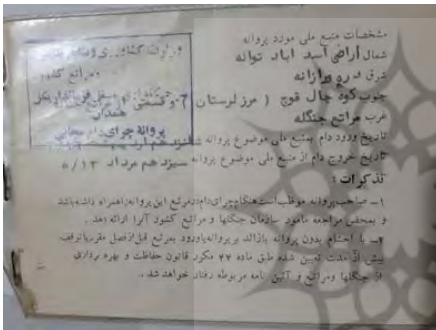 مشخصات منبع ملی مورد پروانه
شمال اراضی اسد اباد توانه
شرق دره برازانه
جنوب کوه چال قوچ ( مرز لرستان )
غرب مراتع جنگله
تاریخ ورود دام بمنبع ملی موضوع پروانه
تاریخ خروج دام از منبع ملی موضوع پروانه سیزدهم مرداد ۵/۱۳
تذکرات :
۱- صاحب پروانه موظف است هنگام چرای دام در مرتع این پروانه را همراه داشته باشد
و بمحض مراجعه مامور سازمان جنگلها و مراتع کشور آنرا ارائه دهد .
۲- با احشام بدون پروانه یا زائد بر پروانه یا ورود بمرتع قبل از فصل مقرر یا توقف
بیش از مدت تعیین شده طبق ماده ۴۴ مکرر قانون حفاظت و بهره برداری
از جنگلها و مراتع و آئین نامه مربوطه رفتار خواهد شد .
وزارت کشاورزی و
همدان
پروانه چرای دام